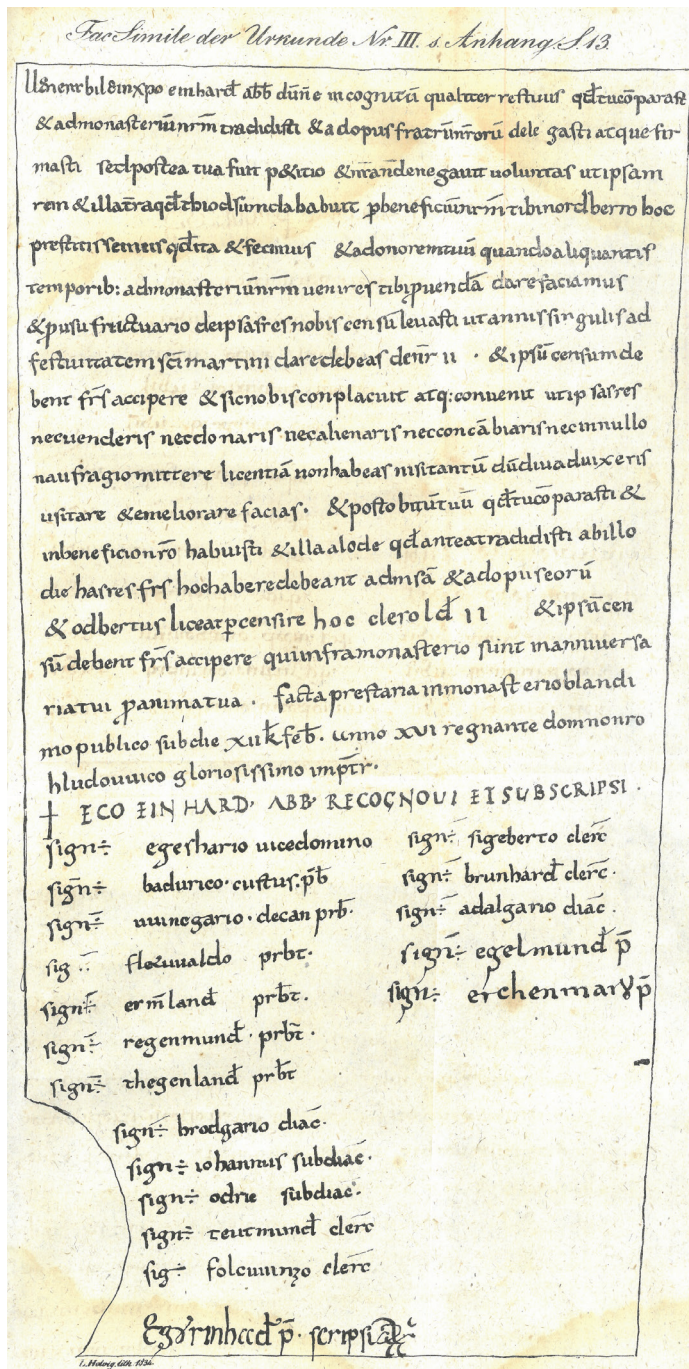 FacSimile der Urkunde Nr III. s. Anhang S. 13.
in xpo einhard abb dum̄ e incognitū qualiter res tuas qd̄ tu cōparasti
& ad monasteriū nr̄m tradidisti & ad opus fratrū nr̄orū delegasti atque fir
masti sed postea tua fuit p&itio & nr̄a n̄ denegavit voluntas ut ipsam
rem & illa tr̄a qd̄ t habuit p̄ beneficiū nr̄m tibi nordberto hoc
prestitissemus qd̄ ita & fecimus & ad onorem tuū quando aliquantis
temporib: ad monasteriū nr̄m venires tibi p̱vendā dare faciamus
& p̱ usu fructuario de ipsas res nobis censū levasti ut annis singulis ad
festivitatem sc̄i martini dare debeas denr̄ 11 · & ipsū censum de
bent fr̄s accipere & sic nobis conplacuit atq: convenit ut ipsas res
nec venderis nec donaris nec alienaris nec concābiaris nec in nullo
naufragio mittere licentiā non habeas nisi tantū dū divadvixeris
usitare & emeliorare facias · & post obitū tuū qd̄ tu cōparasti &
in beneficio nr̄o habuisti & illa alode qd̄ antea tradidisti ab illo
die has res fr̄s hoc habere debeant ad msā & ad opus eorū
& odbertus liceat p censire hoc cler old̄ 11 & ipsū cen
sū debent fr̄s accipere qui infra monasterio sunt in anniversa
ria tui p̱ anima tua . facta prestaria in monasterio blandi
mo publico sub die xiik̄ feb̄. anno xvi regnante domno nr̄o
hludouuico gloriosissimo imp̄tr̄.
† EGO EINHARD· ABB· RECOGNOVI ET SUBSCRIPSI .
sign̄÷ egeshario vicedomino sign̄÷ sigeberto cler̄c
sign̄÷ badurico· custus: pb̄ sign̄÷ brunhard̄ cler̄c·
sign̄÷ uuinegario· decan prb̄· sign̄÷ adalgario diac̄.
sig ÷ prb̄t· sign̄÷ egelmund̄ p̄
sign̄÷ erm̄land̄ prb̄t· sign̄÷ erchenmar p̄
sign̄÷ regenmund̄· prb̄t·
sign̄÷ thegenland̄ prb̄t
sign̄÷ brodgario diac̄·
sign÷ iohannus subdiac̄·
sign÷ odrie subdiac̄·
sign÷ teutmund̄ cler̄c
sig÷ folcuuinzo cler̄c
p̄· scripsi
lith. 1836.